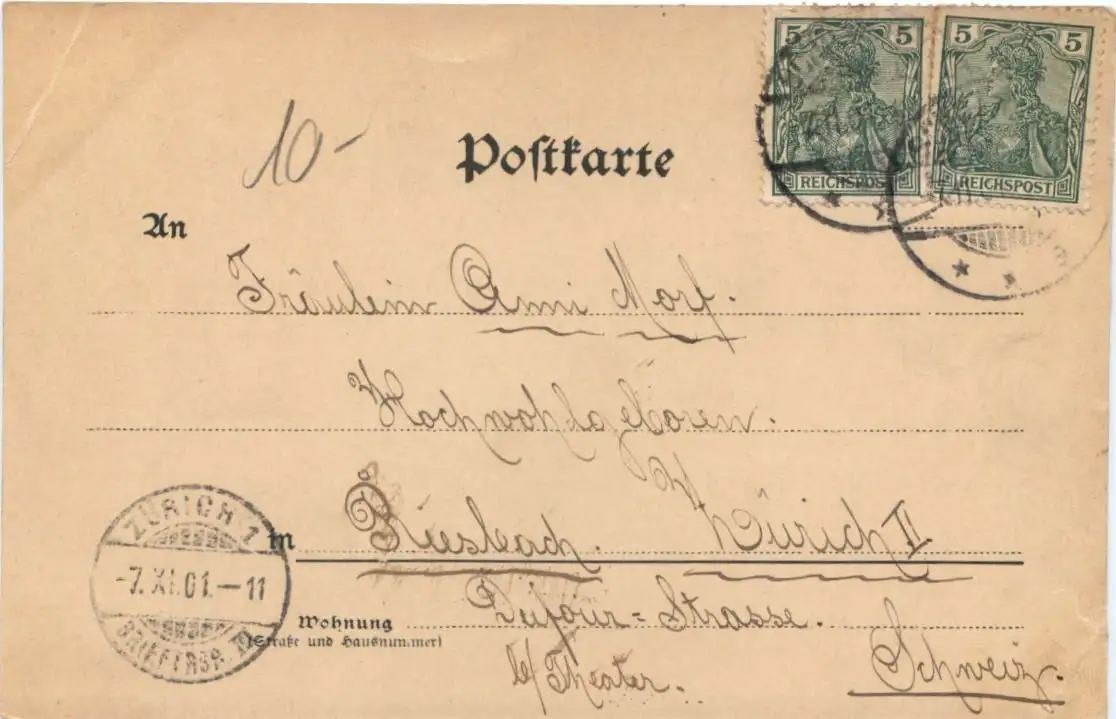 5 5 5 5
REICHSPOST REICHSPOST
10-
Postkarte
An
Fräulein Anni Morf.
Hochwohlgeboren.
in Riesbach. Zürich II
ZÜRICH 1
-7.XI.01.-11
BRIEFTRGR.
Wohnung
(Straße und Hausnummer)
Dufour=Strasse.
b/Theater.
Schweiz.